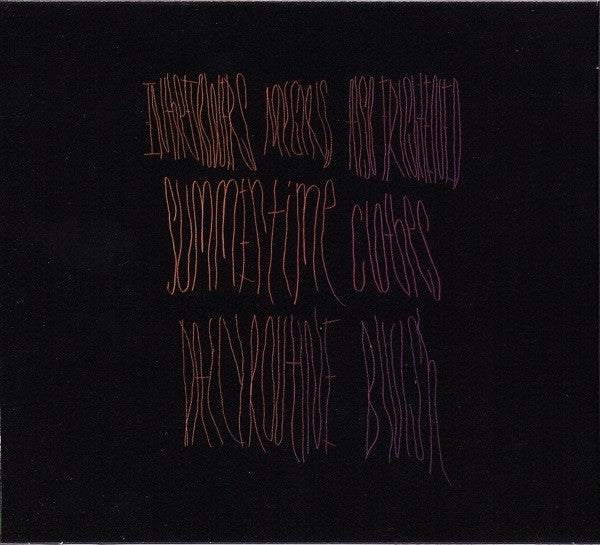 IN the FLOWERS MY GIRLS ALSO FRIGHTENED
SUMMERtime CLOthes
DAILY ROUtiNE BLUiSh